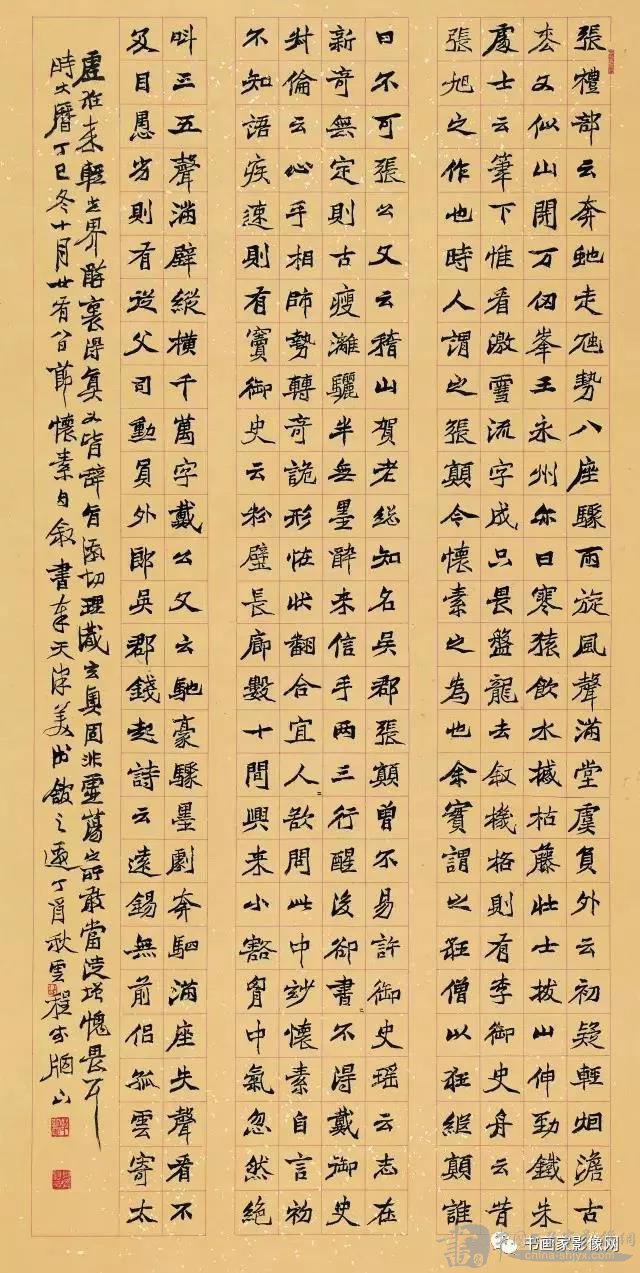 張禮部云奔虵走虺勢入座驟雨旋風聲滿堂盧員外云初疑輕烟澹古
松又似山開万仞峯王永州邕曰寒猿飲水撼枯藤壯士拔山伸勁鐵朱
處士云筆下惟看激電流字成只畏盤龍去叙機格則有李御史舟云昔
張旭之作也時人謂之張顛今懷素之為也余實謂之狂僧以狂繼顛誰
曰不可張公又云稽山賀老総知名吳郡張顛曾不易許御史瑶云志在
新奇無定則古瘦灕驪半無墨醉来信手兩三行醒後卻書不得戴御史
叔倫云心手相師勢轉奇詭形恠状翻合宜人〻欲問此中妙懷素自言初
不知語疾速則有竇御史云粉壁長廊數十間興来小豁胷中氣忽然絕
叫三五聲滿壁縱橫千萬字戴公又云馳豪驟墨劇奔駟滿座失聲看不
及目愚劣則有從父司勳員外郎吳郡錢起詩云遠錫無前侶孤雲寄太
虛狂来輕世界醉裏得真如皆辭旨激切理識玄奧固非虛蕩之所敢當徒增愧畏耳
時大曆丁巳冬十月廿有八日節懷素自叙書奉天津美術館之邀丁酉秋雲程
书画家影像网
china-shyx.com